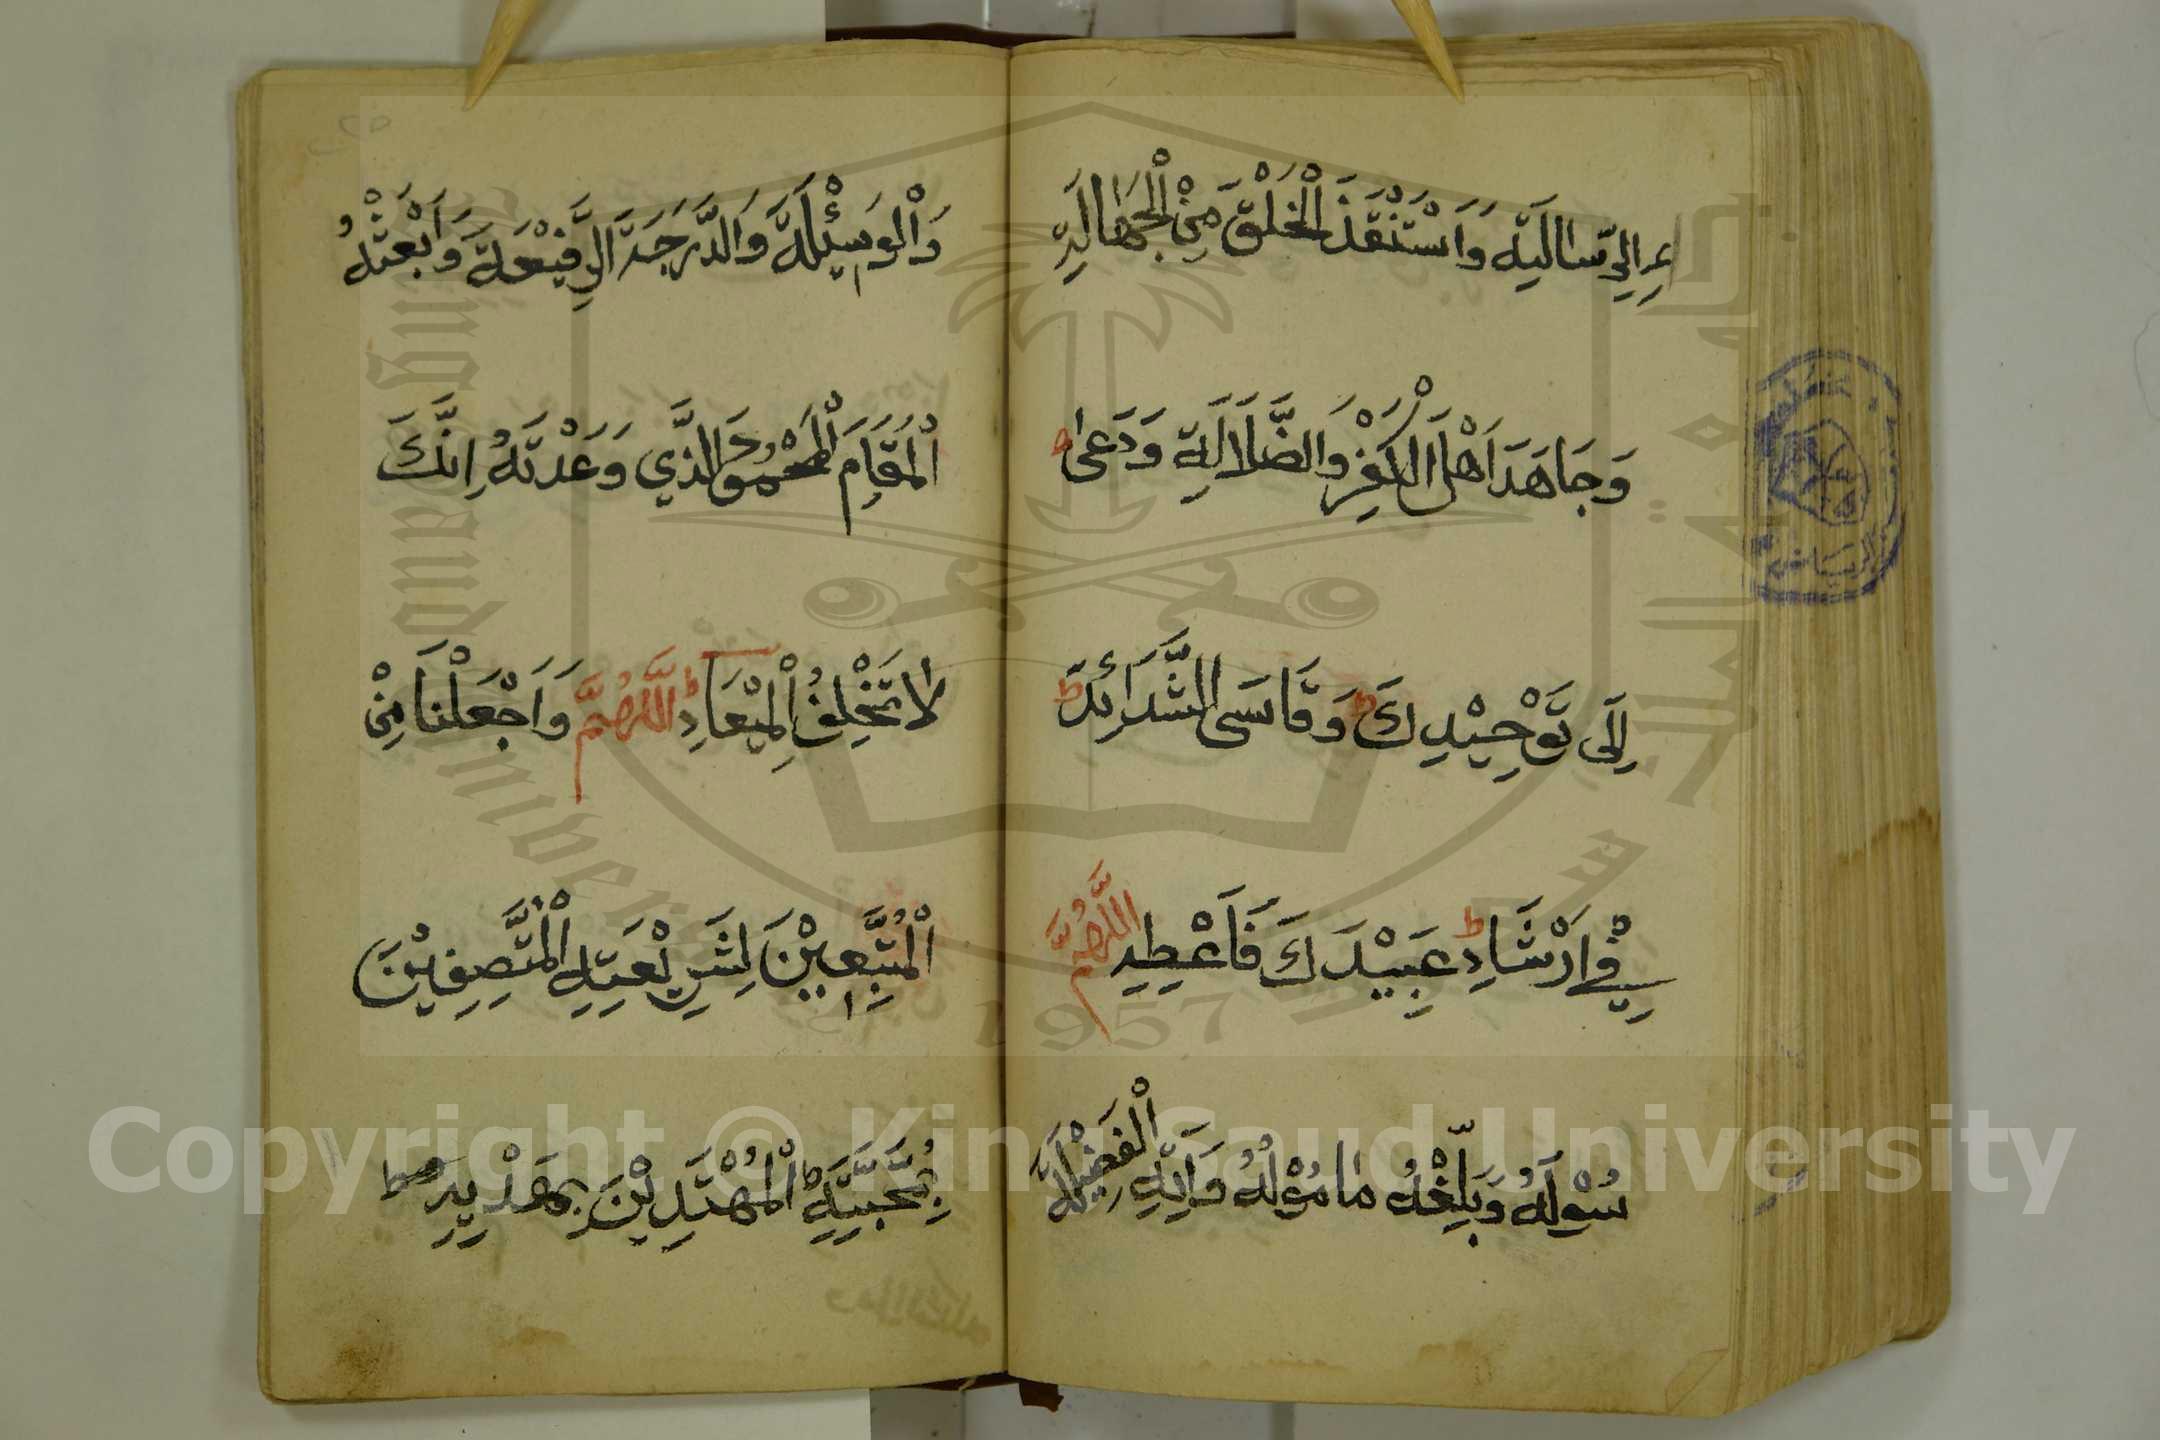 ءِ الرِّسَالَتِهِ وَاسْتَنْقَذَ الْخَلْقَ مِنْ الْجَهَالَةِ
وَجَاهَدَ اَهْلَ الْكُفْرِ وَالضَّلَالَةِ وَدَعٰى
اِلَى تَوْحِيْدِكَ وَقَاسَى الشَّدَائِدَ
فِيْ اِرْشَادِ عَبِيْدِكَ فَاَعْطِهِ اللّٰهُمَّ
سُوْلَهُ وَبَلِّغْهُ مَامُوْلَهُ وَاٰتِهِ الْفَضِيْلَةَ
وَالْوَسِيْلَةَ وَالدَّرَجَةَ الرَّفِيْعَةَ وَابْعَثْهُ
الْمَقَامَ الْمَحْمُوْدَ الَّذِي وَعَدْتَهُ اِنَّكَ
لَا تُخْلِفُ الْمِيْعَادِ اللّٰهُمَّ وَاَجْعَلْنَا مِنْ
الْمُتَّبِعِيْنَ لِشَرِيْعَتِهِ الْمُتَّصِفِيْنَ
بِمُحَبَّتِهِ الْمُهْتَدِيْنَ بِهَدْيِهِ
Copyright © King Saud University
1957